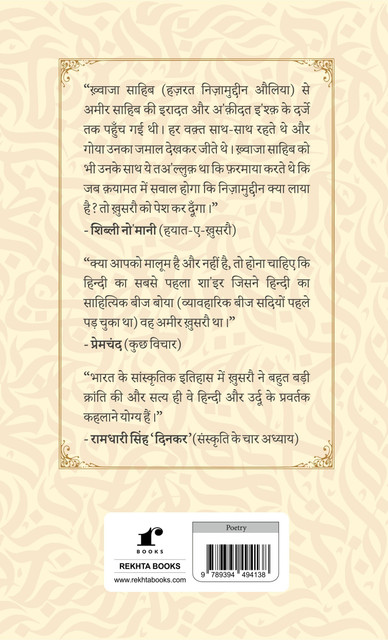 “ख़्वाजा साहिब (हज़रत निज़ामुद्दीन औलिया) से
अमीर साहिब की इरादत और अ'क़ीदत इ'श्क़ के दर्जे
तक पहुँच गई थी। हर वक़्त साथ-साथ रहते थे और
गोया उनका जमाल देखकर जीते थे। ख़्वाजा साहिब को
भी उनके साथ ये तअ'ल्लुक़ था कि फ़रमाया करते थे कि
जब क़यामत में सवाल होगा कि निज़ामुद्दीन क्या लाया
है? तो ख़ुसरौ को पेश कर दूँगा।”
- शिब्ली नो'मानी (हयात-ए-ख़ुसरौ)
“क्या आपको मालूम है और नहीं है, तो होना चाहिए कि
हिन्दी का सबसे पहला शा'इर जिसने हिन्दी का
साहित्यिक बीज बोया (व्यावहारिक बीज सदियों पहले
पड़ चुका था) वह अमीर ख़ुसरौ था।”
- प्रेमचंद (कुछ विचार)
“भारत के सांस्कृतिक इतिहास में ख़ुसरौ ने बहुत बड़ी
क्रांति की और सत्य ही वे हिन्दी और उर्दू के प्रवर्तक
कहलाने योग्य हैं।”
- रामधारी सिंह ‘दिनकर’ (संस्कृति के चार अध्याय)
r
BOOKS
REKHTA BOOKS
www.rekhtabooks.com
Poetry
9 789394 494138